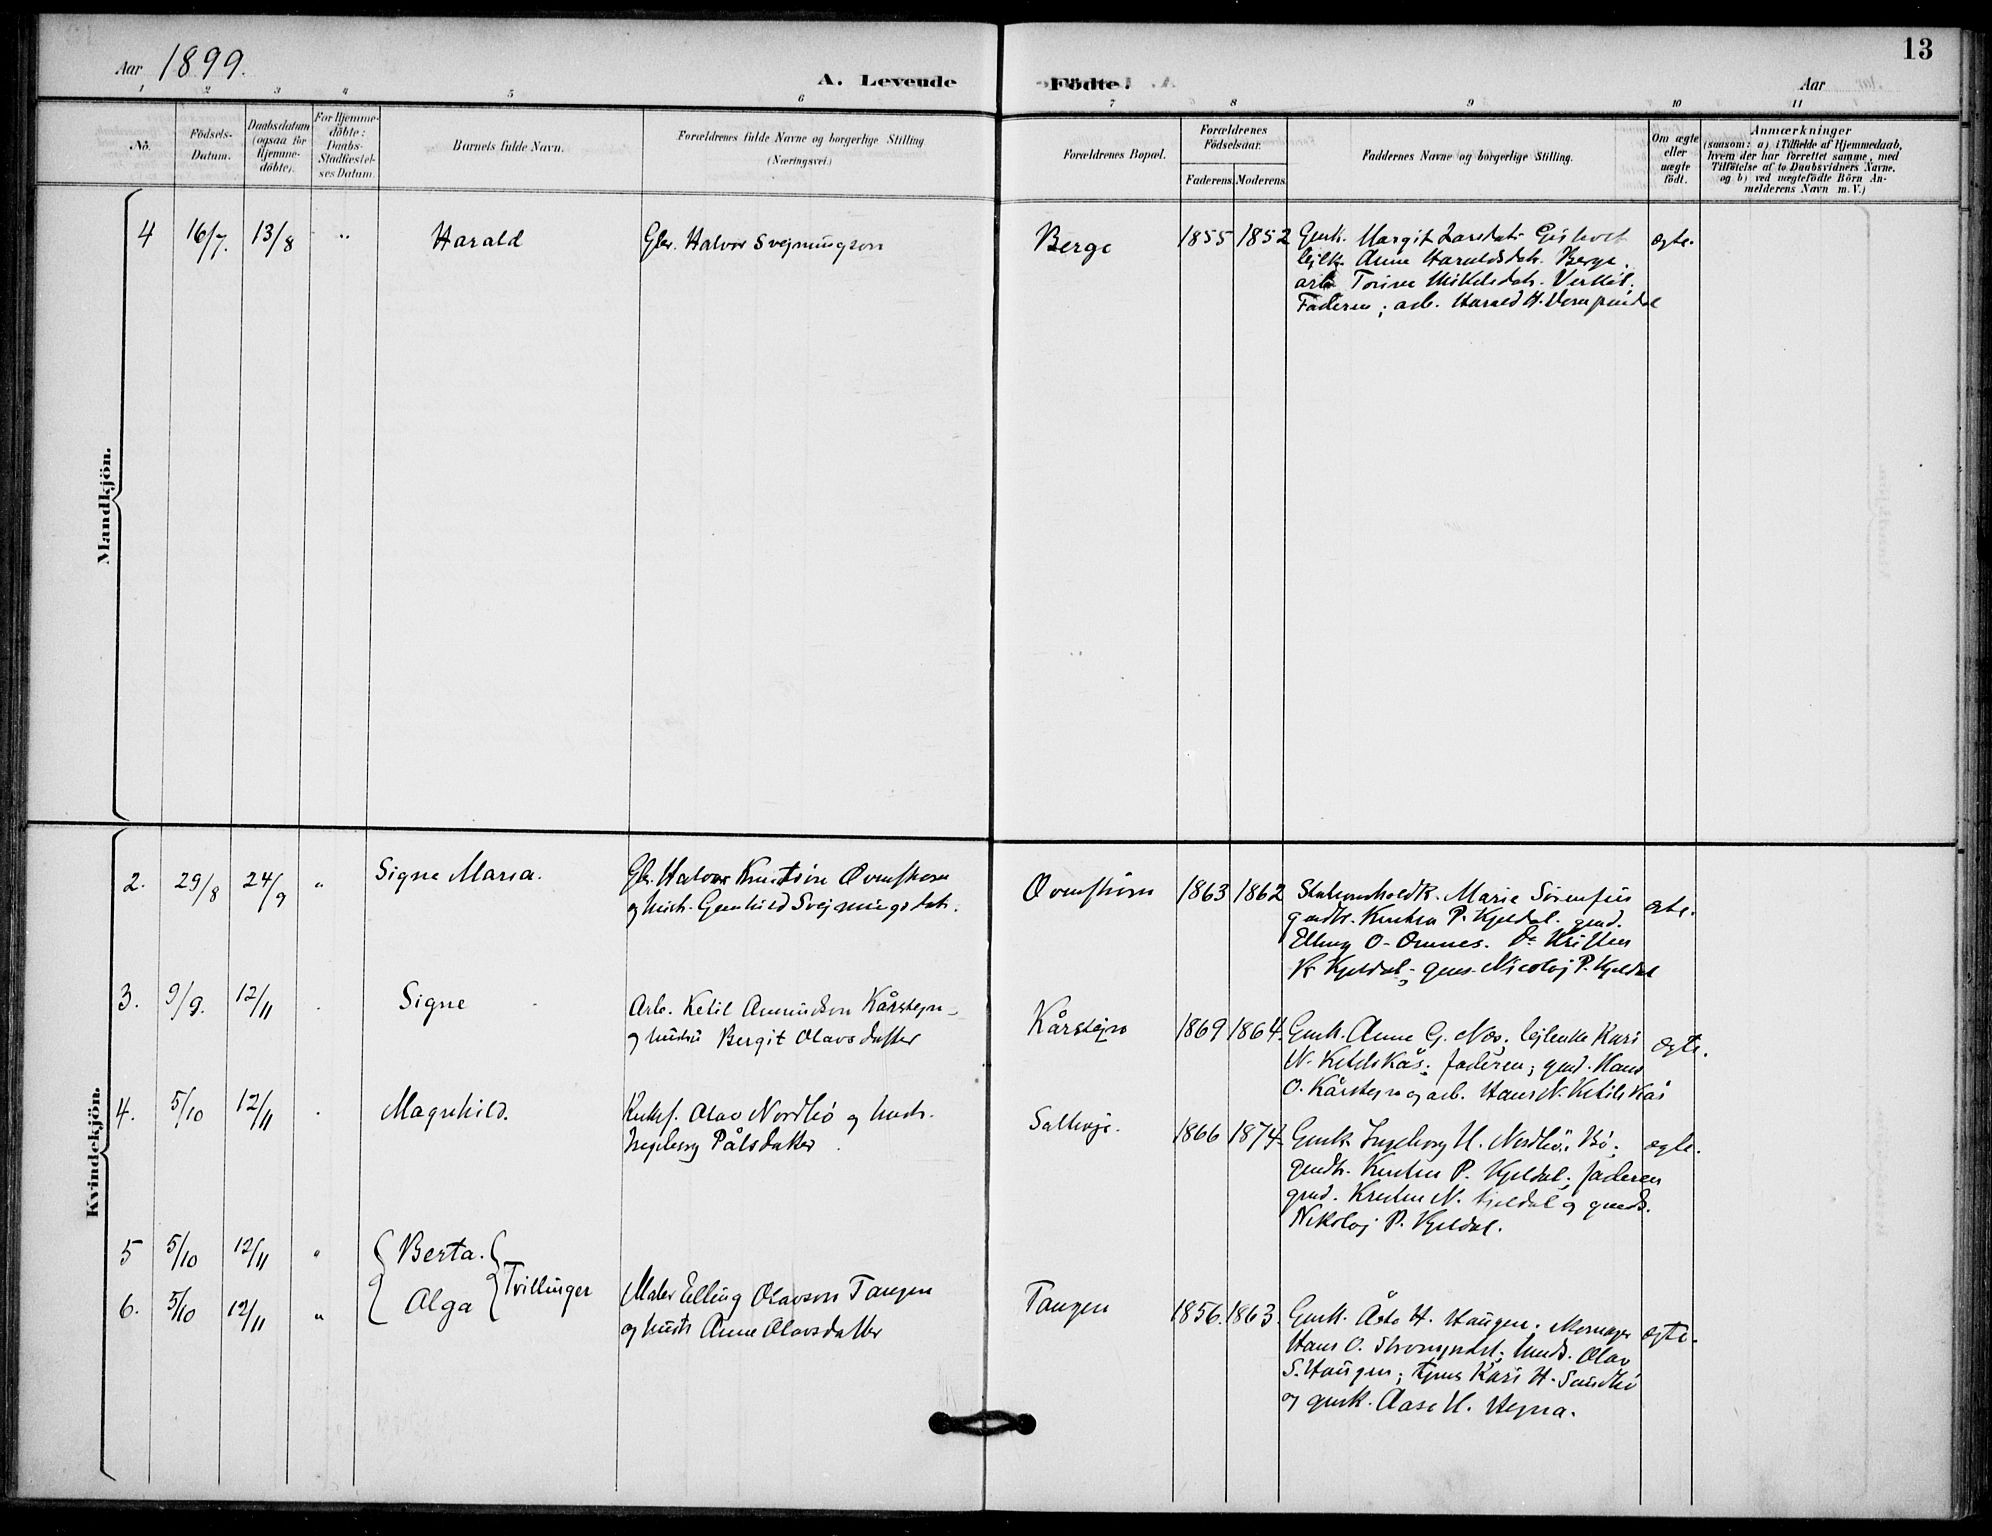 Aar 1899.
A. Levende Födte.
Aar
13
1 2 3 4 5 6 7 8 9 10 11
No.
Födsels-
Datum.
Daabsdatum
(ogsaa for
Hjemme-
döbte).
For Hjemme-
döbte:
Daabs-
Stadfæstel-
ses Datum.
Barnets fulde Navn.
Forældrenes fulde Navne og borgerlige Stilling
(Næringsvei.)
Forældrenes Bopæl.
Forældrenes
Födselsaar.
Faderens Moderens
Faddernes Navne og borgerlige Stilling.
Om ægte
eller
uægte
födt.
Anmærkninger
(saasom: a) i Tilfælde af Hjemmedaab,
hvem der har forrettet samme, med
Tilföielse af to Daabsvidners Navne,
og b) ved uægtefödte Börn An-
melderens Navn m. V.)
Mandkjön.
4 16/7. 13/8 " Harald
Gbr. Halvor Svejnungson
Berge
1855 1852
Gmk. Margit Larsdatr
lejlk. Anne Haraldsdatr. Berge.
arb Torine Mikkelsdatr.
Faderen; arb. Harald H.
ægte.
Kvindekjön.
2. 29/8 24/9 " Signe Maria.
Gbr. Halvor
og hustr. Gunhild Svejnungsdatr.
1863 1862
Marie
P. Kjeldal. gmd.
Elling O. Omnes. Do Kristen
K. Kjeldal; gms. Nicolaj P. Kjeldal
ægte.
3. 9/9. 12/11 Signe
Arb. Ketil Amundson Kårstejn
og hustru Bergit Olavsdatter
Kårstejn
1869 1864.
Gmk. Anne G. Næs. lejlenke Kari
N. Ketilskås; faderen; gmd. Hans
O. Kårstejn og arb. Hans N. Ketilskås
ægte.
4. 5/10 12/11 Magnhild.
Olav Nordbö og hustr.
Ingeborg Pålsdatter.
1866 1874.
Gmk Ingeborg H. Nordbö, Bö;
P. Kjeldal; faderen
gmd. N. Kjeldal og
Nikolaj P. Kjeldal.
ægte.
5 5/10 12/11 " Berta.
6. 5/10 12/11 " Alga
Tvillinger
Maler Elling Olavson Tangen
og hustr Anne Olavsdatter
Tangen
1856. 1863.
Gmk. Åste H. Haugen.
Hans O. Olav
S. Haugen; Kari H.
og gmk. Aase H. Hegna.
ægte.